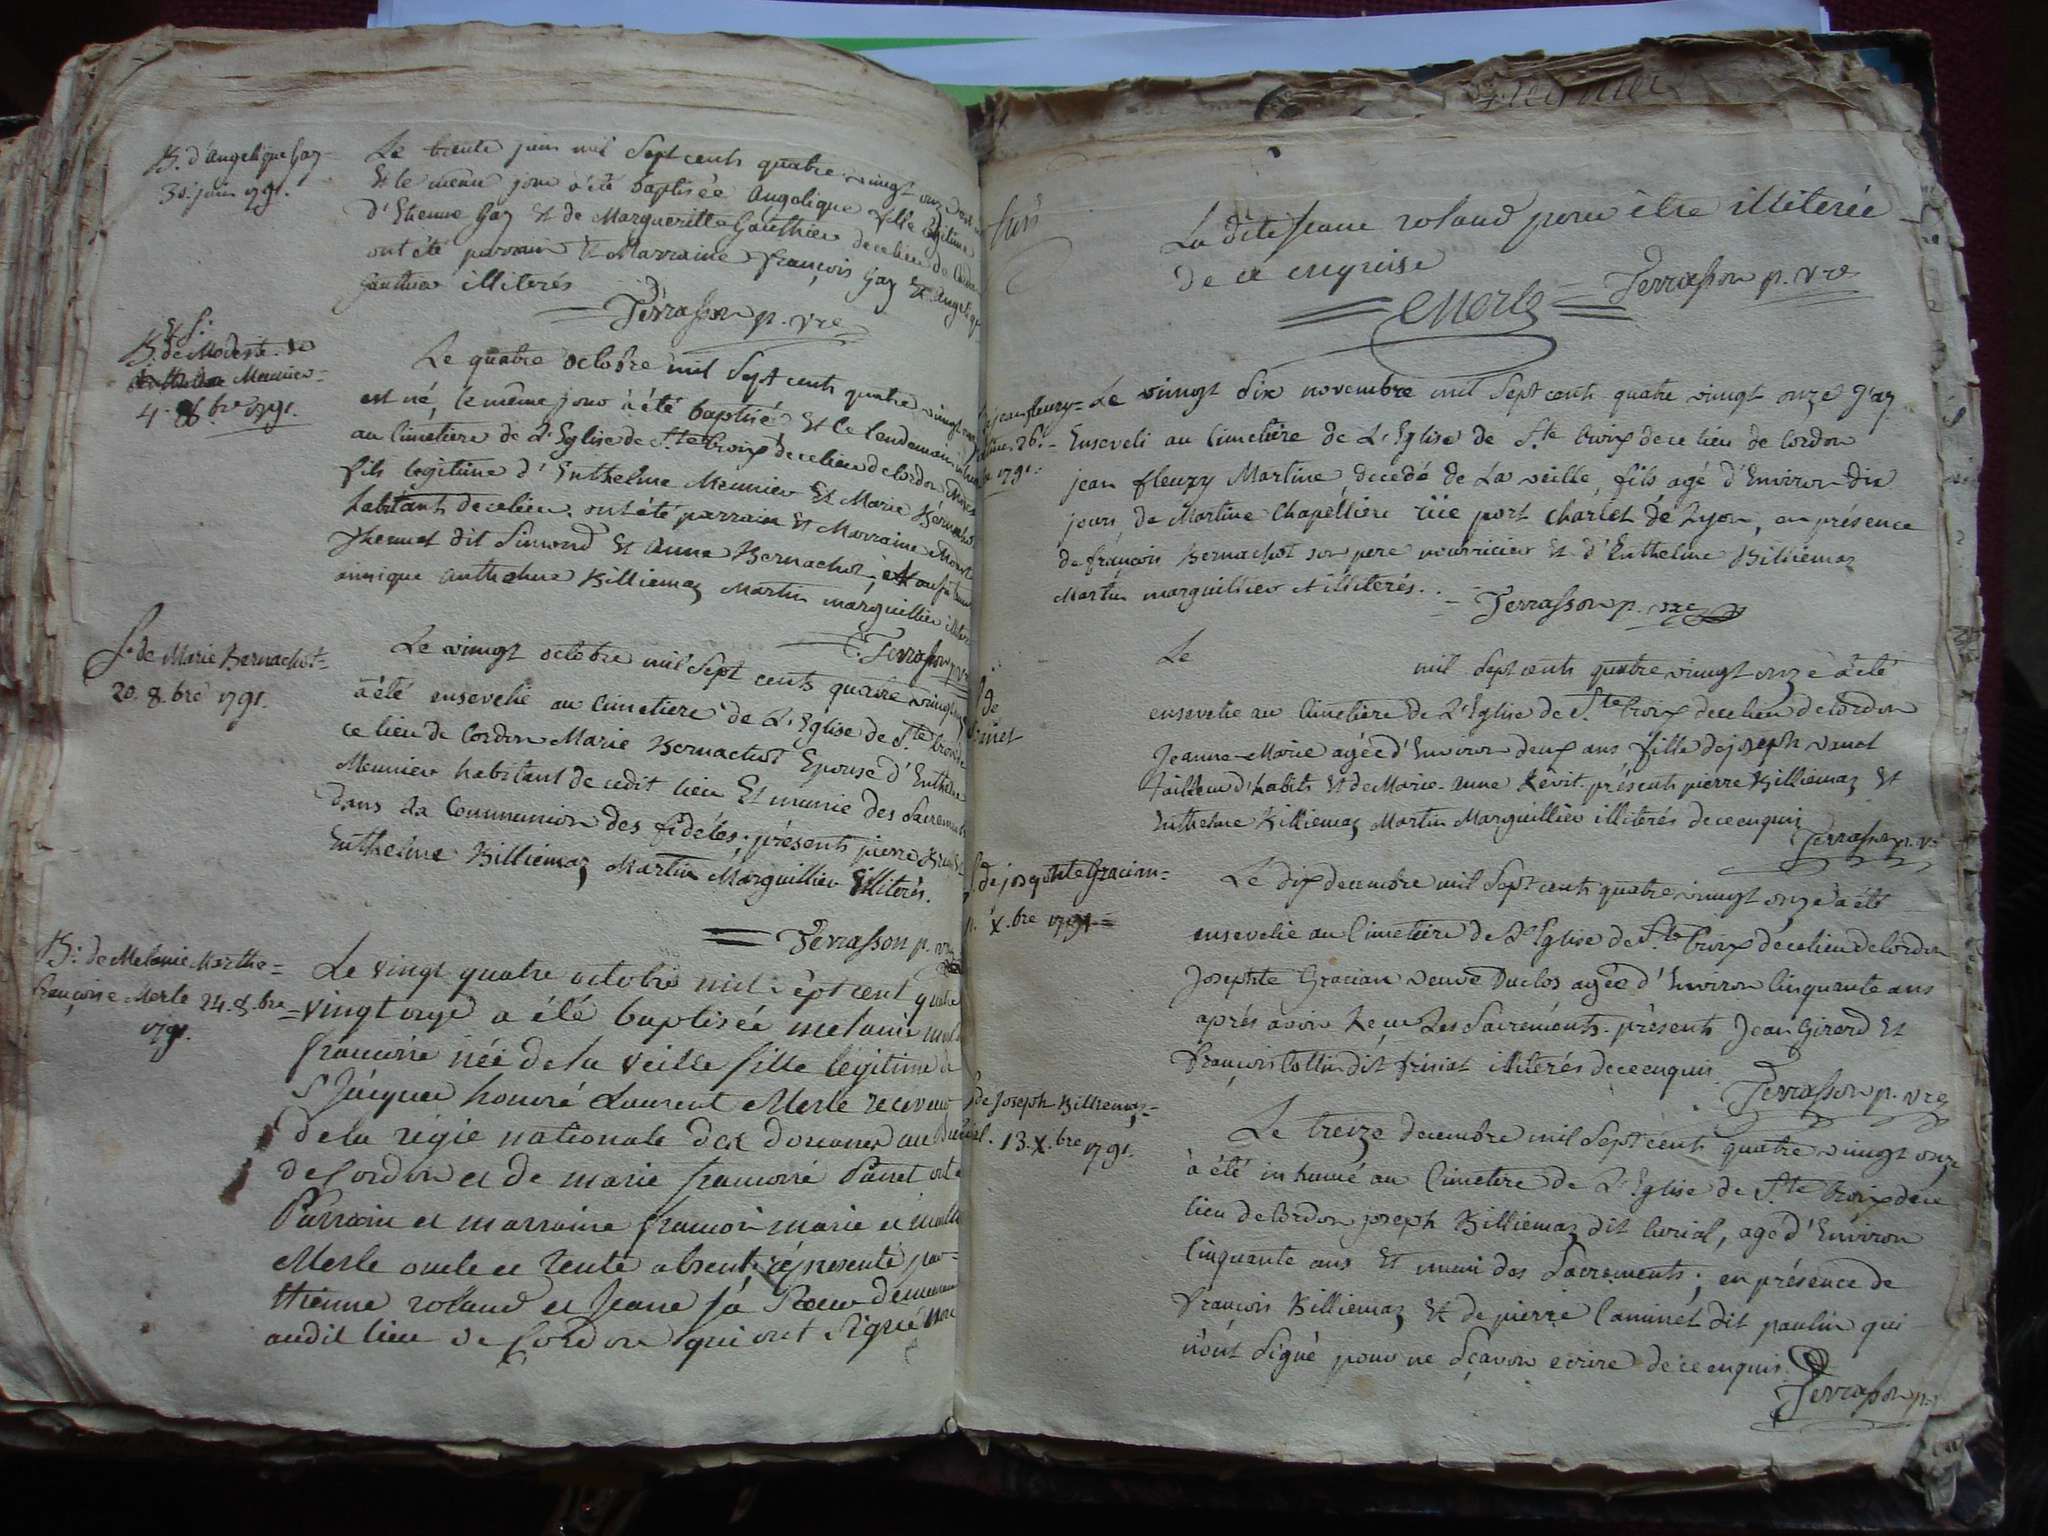 B. d'Angelique Gay
30. juin 1791.
Le trente juin mil Sept cents quatre vingt onze est
Et le même jour a été baptisée Angelique fille legitime
d'Etienne Gay Et de Margueritte Gauthier de ce lieu de
ont été parrain Et Marraine françois Gay Et Angelique
Gauthier illiterés
Terrasson p. vre
Et S.
B. de Modeste
Meunier
4. 8.bre 1791.
Le quatre octobre mil Sept cents quatre vingt
est né, le même jour à été baptisé Et le lendemain
au Cimetiere de L'Eglise de Ste Croix de ce lieu de Cordon
fils legitime d'Enthelme Meunier Et Marie Bernachot
habitants de ce lieu. ont été parrain Et Marraine
dit Simond Et Anne Bernachot,
Anthelme Billiemaz Martin marguillier
Terrasson p. vre
S. de Marie Bernachot
20. 8.bre 1791.
Le vingt octobre mil Sept cents quatre vingt
à été ensevelie au Cimetiere de L'Eglise de Ste Croix de
ce lieu de Cordon Marie Bernachot Epouse d'Enthelme
Meunier habitant de cedit lieu Et munie des Sacrements
dans la Communion des fidéles; présents pierre
Enthelme Billiemaz Martin Marguillier illiterés.
Terrasson p. vre
B. de Melanie Marthe
françoise Merle 24. 8.bre
1791.
Le vingt quatre octobre mil sept cent quatre
vingt onze a été baptisée melanie
francoise née de la veille fille legitime de
Sr Jacques honoré Laurent Merle receveur
de la régie nationale des douanes au Bureau
de Cordon et de marie francoise Parret ont
Parrain et marraine francois marie et
Merle oncle et tente absents représenté par
thienne roland et Jeane sa Soeur demeurant
audit lieu de Cordon qui ont Signé non
La dite Jeane roland pour être illiterée
de ce enquise
Merle Terrasson p. vre
jean fleury
Martine 26.
1791.
Le vingt six novembre mil Sept cents quatre vingt onze j'ay
Enseveli au Cimetière de L'Eglise de Ste Croix de ce lieu de Cordon
jean fleury Martine decedé de La veille, fils agé d'Environ dix
jours, de Martine Chapelliere rüe port Charlet de Lyon, en présence
de françois Bernachot son pere nourricier Et d'Enthelme Billiemaz
Martin marguillier illiterés.
Terrasson p. vre
S. de
Vanet
Le mil Sept cents quatre vingt onze à été
ensevelie au Cimetière de L'Eglise de Ste Croix de ce lieu de Cordon
Jeanne-Marie agée d'Environ deux ans fille de joseph vanet
Tailleur d'habits Et de Marie-Anne Revit. présents pierre Billiemaz Et
Enthelme Billiemaz Martin Marguillier illiterés de ce enquis
Terrasson p. vre
S. de josephte Gracian
X.bre 1791
Le dix decembre mil Sept cents quatre vingt onze à été
ensevelie au Cimetiere de L'Eglise de Ste Croix de ce lieu de Cordon
Josephte Gracian veuve Duclos agée d'Environ Cinquante ans
aprés avoir Recu Les Sacrements. présents Jean Girard Et
François Collin dit frisiat illiterés de ce enquis
Terrasson p. vre
S. de Joseph Billiemaz
13. X.bre 1791.
Le treize decembre mil Sept cents quatre vingt onze
à été inhumé au Cimetiere de L'Eglise de Ste Croix de ce
lieu de Cordon joseph Billiemaz dit Curial, agé d'Environ
Cinquante ans Et muni des Sacrements; en présence de
françois Billiemaz Et de pierre Caminet dit paulin qui
n'ont Signé pour ne Sçavoir ecrire de ce enquis.
Terrasson p.